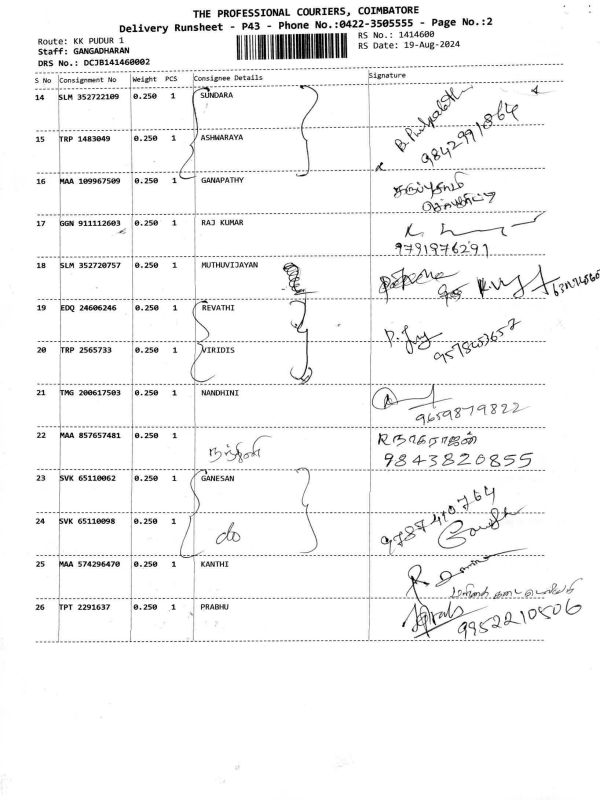 THE PROFESSIONAL COURIERS, COIMBATORE
Delivery Runsheet - P43 - Phone No.:0422-3505555 - Page No.:2
Route: KK PUDUR 1
RS No.: 1414600
Staff: GANGADHARAN
RS Date: 19-Aug-2024
DRS No.: DCJB141460002
S No Consignment No Weight PCS Consignee Details Signature
14 SLM 352722109 0.250 1 SUNDARA
9842991864
15 TRP 1483049 0.250 1 ASHWARAYA
16 MAA 109967509 0.250 1 GANAPATHY
17 GGN 911112603 0.250 1 RAJ KUMAR
9791976291
18 SLM 352720757 0.250 1 MUTHUVIJAYAN
19 EDQ 24606246 0.250 1 REVATHI
20 TRP 2565733 0.250 1 VIRIDIS
21 TMG 200617503 0.250 1 NANDHINI
9659879822
22 MAA 857657481 0.250 1 நந்தினி R நாகராஜன்
9843820855
23 SVK 65110062 0.250 1 GANESAN
9787410764
24 SVK 65110098 0.250 1 do
25 MAA 574296470 0.250 1 KANTHI
26 TPT 2291637 0.250 1 PRABHU
9952210506